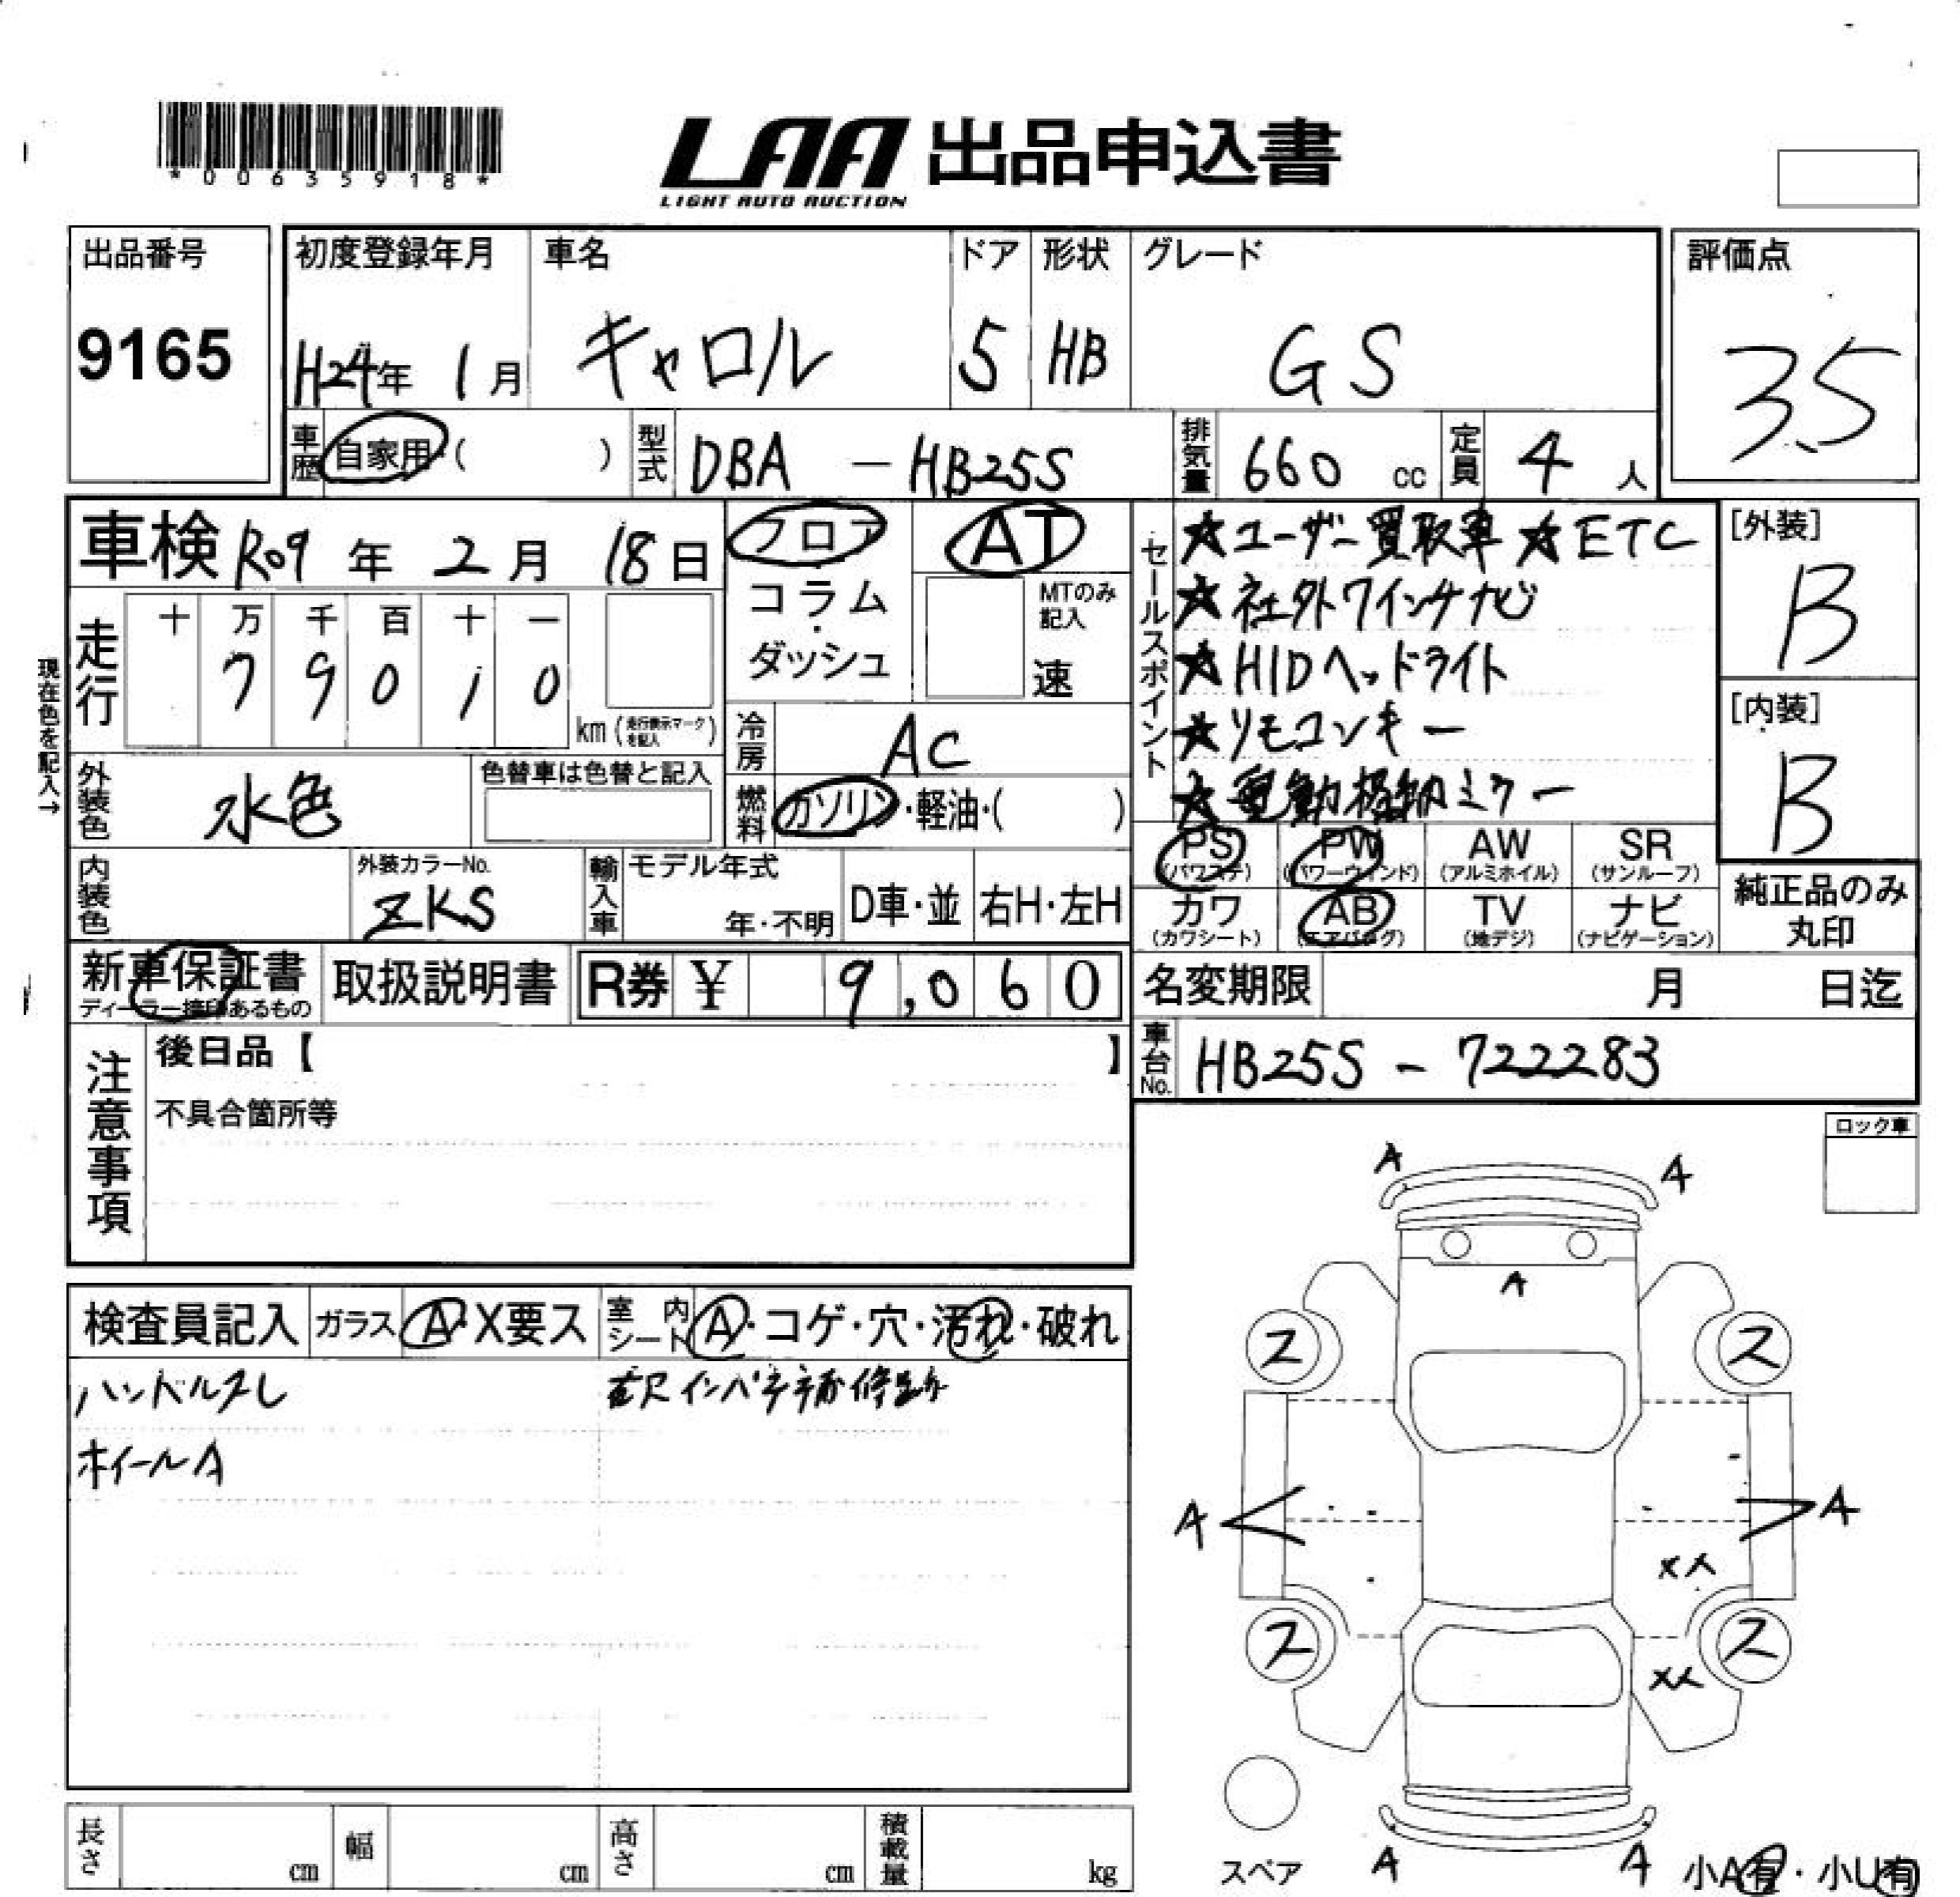 *00635918*
LAA 出品申込書
LIGHT AUTO AUCTION
出品番号
9165
初度登録年月
H24年 1月
車名
キャロル
ドア
5
形状
HB
グレード
GS
評価点
3.5
車歴 自家用・( )
型式 DBA - HB25S
排気量 660 cc
定員 4 人
車検 R09年 2月 18日
フロア
コラム
・
ダッシュ
AT
MTのみ記入
速
セールスポイント
★ユーザー買取車 ★ETC
★社外ワインチナビ
★HIDヘッドライト
★リモコンキー
★電動格納ミラー
[外装]
B
[内装]
B
現在色を記入→
走行
十 万 千 百 十 一
7 9 0 1 0
km (走行表示マークを記入)
冷房 AC
外装色 水色
色替車は色替と記入
燃料 ガソリン・軽油・( )
PS (パワステ)
PW (パワーウインド)
AW (アルミホイル)
SR (サンルーフ)
カワ (カワシート)
AB (エアバッグ)
TV (地デジ)
ナビ (ナビゲーション)
純正品のみ
丸印
内装色
外装カラーNo.
ZKS
輸入車
モデル年式
年・不明
D車・並
右H・左H
新車保証書
ディーラー捺印あるもの
取扱説明書
R券 ¥ 9,060
名変期限 月 日迄
車台No. HB25S - 722283
注意事項
後日品【 】
不具合箇所等
ロック車
検査員記入
ガラス A・X要ス
室内シート A・コゲ・穴・汚れ・破れ
ハンドルスレ
ホイールA
A A
A
ス ス
A A
XX
ス ス
XX
A A
スペア
小A有・小U有
長さ cm
幅 cm
高さ cm
積載量 kg